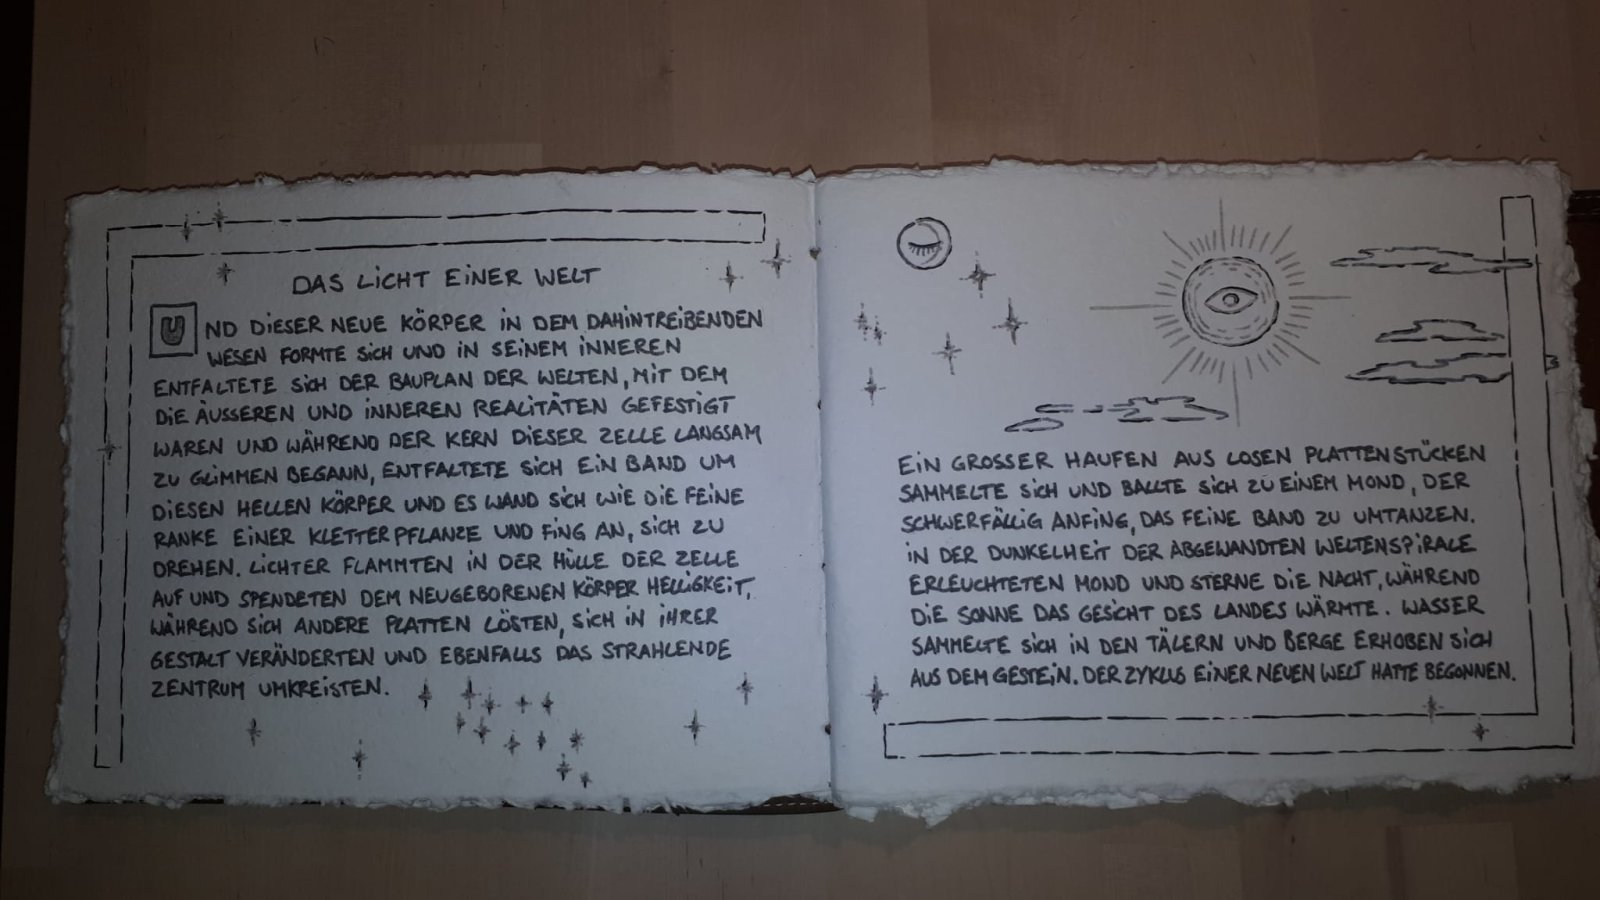 DAS LICHT EINER WELT
UND DIESER NEUE KÖRPER IN DEM DAHINTREIBENDEN
WESEN FORMTE SICH UND IN SEINEM INNEREN
ENTFALTETE SICH DER BAUPLAN DER WELTEN, MIT DEM
DIE ÄUSSEREN UND INNEREN REALITÄTEN GEFESTIGT
WAREN UND WÄHREND DER KERN DIESER ZELLE LANGSAM
ZU GLIMMEN BEGANN, ENTFALTETE SICH EIN BAND UM
DIESEN HELLEN KÖRPER UND ES WAND SICH WIE DIE FEINE
RANKE EINER KLETTERPFLANZE UND FING AN, SICH ZU
DREHEN. LICHTER FLAMMTEN IN DER HÜLLE DER ZELLE
AUF UND SPENDETEN DEM NEUGEBORENEN KÖRPER HELLIGKEIT,
WÄHREND SICH ANDERE PLATTEN LÖSTEN, SICH IN IHRER
GESTALT VERÄNDERTEN UND EBENFALLS DAS STRAHLENDE
ZENTRUM UMKREISTEN.
EIN GROSSER HAUFEN AUS LOSEN PLATTENSTÜCKEN
SAMMELTE SICH UND BALLTE SICH ZU EINEM MOND, DER
SCHWERFÄLLIG ANFING, DAS FEINE BAND ZU UMTANZEN.
IN DER DUNKELHEIT DER ABGEWANDTEN WELTENSPIRALE
ERLEUCHTETEN MOND UND STERNE DIE NACHT, WÄHREND
DIE SONNE DAS GESICHT DES LANDES WÄRMTE. WASSER
SAMMELTE SICH IN DEN TÄLERN UND BERGE ERHOBEN SICH
AUS DEM GESTEIN. DER ZYKLUS EINER NEUEN WELT HATTE BEGONNEN.